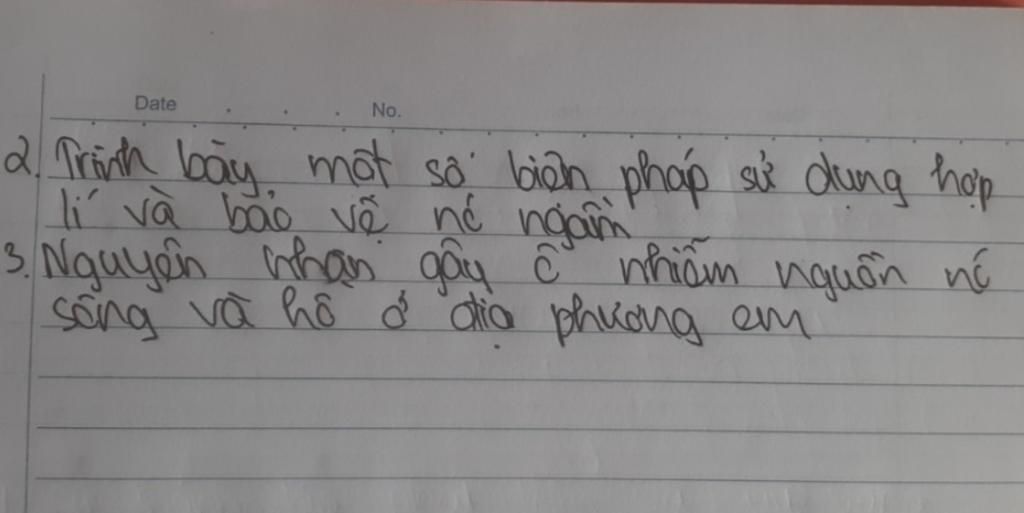 Date No.
2. Trình bày một số biện pháp sử dụng hợp
lí và bảo vệ nć ngầm
3. Nguyên nhân gây ô nhiễm nguồn nć
sông và hồ ở địa phương em